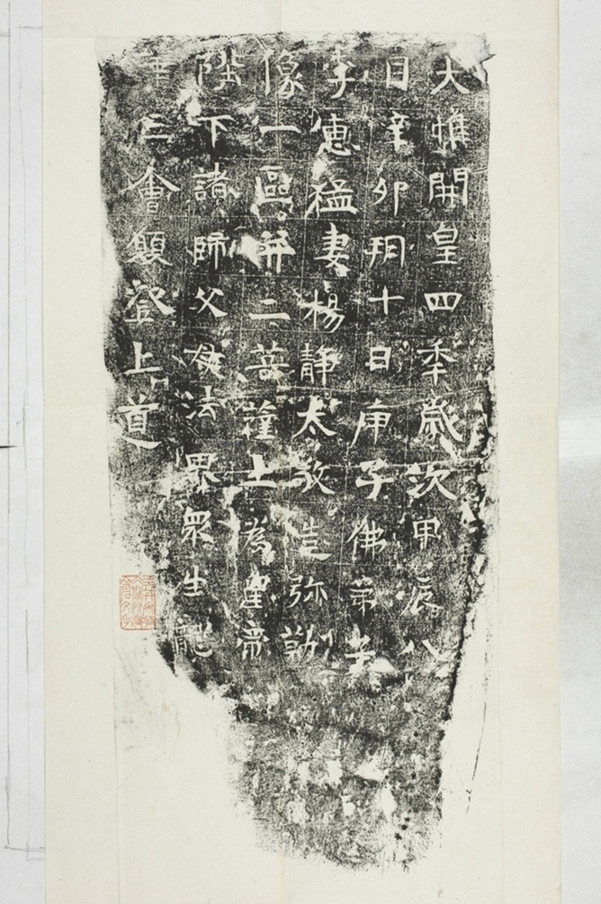 大惟開皇四年歲次甲辰八
月辛卯朔十日庚子佛弟子
李惠猛妻楊靜太敬造弥勒
像一區并二菩薩上為皇帝
陛下諸師父母法界衆生龍
華三會願登上道